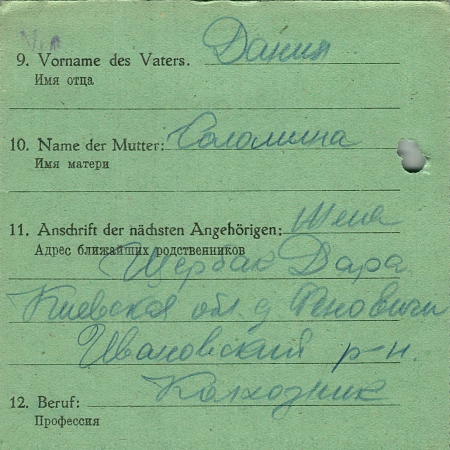 9. Vorname des Vaters. Дания
Имя отца
10. Name der Mutter: Саломина
Имя матери
11. Anschrift der nächsten Angehörigen: Жена
Адрес ближайших родственников
Щербак Дара
Киевская обл. д.
Ивановский р-н.
12. Beruf: Колхозник
Профессия